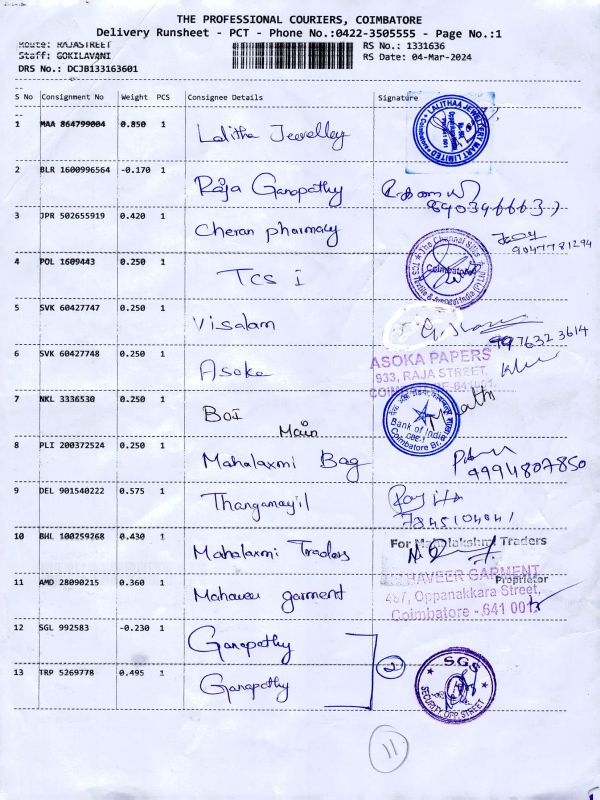 THE PROFESSIONAL COURIERS, COIMBATORE
Delivery Runsheet - PCT - Phone No.:0422-3505555 - Page No.:1
Route: RAJASTREET
RS No.: 1331636
Staff: GOKILAVANI
RS Date: 04-Mar-2024
DRS No.: DCJB133163601
S No Consignment No Weight PCS Consignee Details Signature
1 MAA 864799004 0.850 1 Lalitha Jewelley
LALITHAA JEWELLERY MART LIMITED
2 BLR 1600996564 -0.170 1 Raja Ganapathy
3 JPR 502655919 0.420 1 Cheran pharmacy
9047781294
4 POL 1609443 0.250 1 TCS I
The Chennai Silks
Coimbatore
5 SVK 60427747 0.250 1 Visalam
9976323614
6 SVK 60427748 0.250 1 Asoka
ASOKA PAPERS
933, RAJA STREET,
7 NKL 3336530 0.250 1 BOI
Main
Bank of India
CBE-1
Coimbatore Br.
8 PLI 200372524 0.250 1 Mahalaxmi Bag
9994807850
9 DEL 901540222 0.575 1 Thangamayil
7345104041
10 BHL 100259268 0.430 1 Mahalaxmi Traders
For Mahalakshmi Traders
Proprietor
11 AMD 28090215 0.360 1 Mahaveer garment
MAHAVEER GARMENT
487, Oppanakkara Street,
Coimbatore - 641 001
12 SGL 992583 -0.230 1 Ganapathy
2
13 TRP 5269778 0.495 1 Ganapathy
S.G.S
SECURITY, OPP. STREET
11